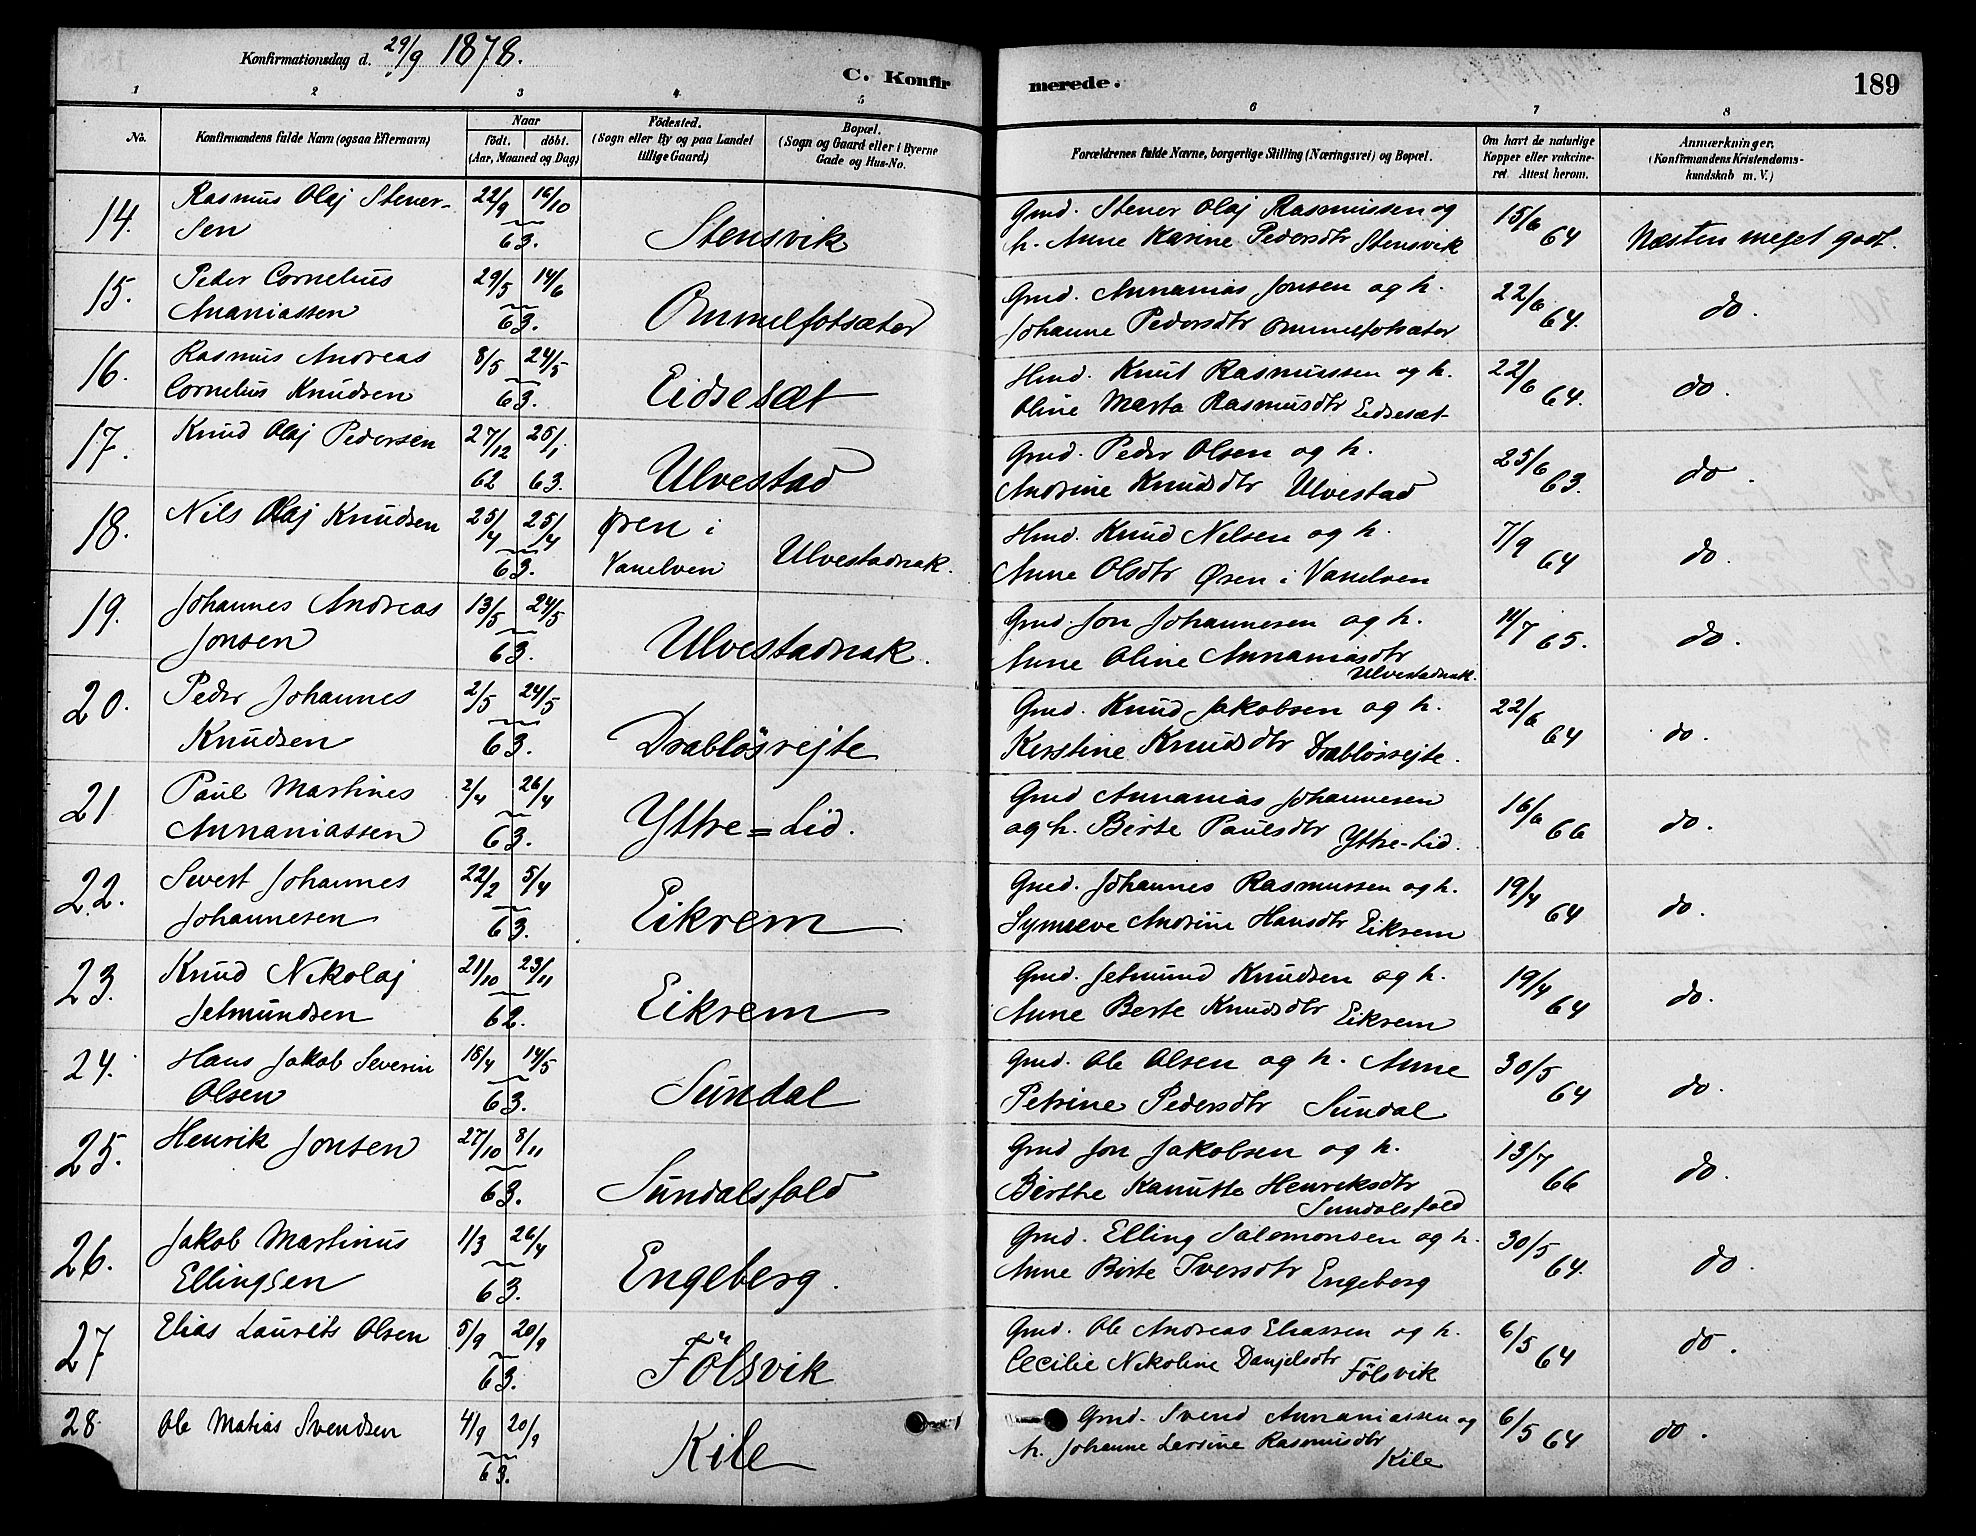 Konfirmationsdag d. 29/9 1878.
C. Konfir
merede.
189
1 2 3 4 5 6 7 8
No.
Konfirmandens fulde Navn (ogsaa Efternavn)
Naar
födt. döbt.
(Aar, Maaned og Dag)
Födested.
(Sogn eller By og paa Landet
tillige Gaard)
Bopæl.
(Sogn og Gaard eller i Byerne
Gade og Hus-No.
Forældrenes fulde Navne, borgerlige Stilling (Næringsvei) og Bopæl.
Om havt de naturlige
Kopper eller vakcine-
ret. Attest herom.
Anmærkninger.
(Konfirmandens Kristendoms-
kundskab m. V.)
14. Rasmus Olaj Stener- 22/9 16/10 Gmd. Stener Olaj Rasmussen og 15/6
sen 63. Stensvik h. Anne Karine Pedersdtr Stensvik 64 Næsten meget godt.
15. Peder Cornelius 29/5 14/6 Gmd. Annanias Jonsen og h. 22/6
Ananiassen 63. Ommelfotsæter Johanne Pedersdtr Ommelfotsæter 64. do.
16. Rasmus Andreas 8/5 24/5 Hmd. Knut Rasmussen og h. 22/6
Cornelius Knudsen 63. Eidsesæt Oline Marta Rasmusdtr Eidsesæt 64. do.
17. Knud Olaj Pedersen 27/12 25/1. Gmd. Peder Olsen og h. 25/6
62 63. Ulvestad Andrine Knudsdtr Ulvestad 63. do.
18. Nils Olaj Knudsen 25/4 25/4 Øren i Hmd. Knud Nelsen og h. 7/9
63. Vanelven Ulvestadnak. Anne Olsdtr Øren i Vanelven 64 do.
19. Johannes Andreas 13/5 24/5 Gmd. Jon Johannesen og h. 11/7
Jonsen 63. Ulvestadnak. Anne Oline Annaniasdtr 65. do.
Ulvestadnak.
20. Peder Johannes 2/5 24/5 Gmd. Knud Jakobsen og h. 22/6
Knudsen 63. Drablösrejte Kerstine Knudsdtr Drablösrejte. 64 do.
21 Paul Martines 2/4 26/4 Gmd Annanias Johannesen 16/6
Annaniassen 63. Yttre=Lid. og h. Berte Paulsdtr Yttre-Lid. 66 do.
22. Severt Johannes 22/2 5/4 Gmd. Johannes Rasmussen og h. 19/4
Johannesen 63. Eikrem Synneve Andrine Hansdtr Eikrem 64 do.
23. Knud Nikolaj 21/10 23/11 Gmd. Jetmund Knudsen og h. 19/4
Jetmundsen 62. Eikrem Anne Berte Knudsdtr Eikrem 64 do.
24. Hans Jakob Severin 16/4 14/5 Gmd. Ole Olsen og h. Anne 30/5
Olsen 63. Sundal Petrine Pedersdtr Sundal 64 do.
25. Henrik Jonsen 27/10 8/11 Gmd Jon Jakobsen og h. 13/7
63. Sundalsfold Berthe Kanutte Henriksdtr 66 do.
Sundalsfold
26. Jakob Martinus 1/3 26/4 Gmd. Elling Salomonsen og h. 30/5
Ellingsen 63. Engeberg. Anne Berte Iversdtr Engeberg 64. do.
27 Elias Laurits Olsen 5/9 20/9 Gmd. Ole Andreas Eliassen og h. 6/5
63. Fölsvik Cecilie Nikoline Danjelsdtr Fölsvik 64 do.
28 Ole Matias Svendsen 4/9 20/9 Gmd. Svend Annaniassen og 6/5
63. Kile h. Johanne Lersine Rasmusdtr 64 do.
Kile